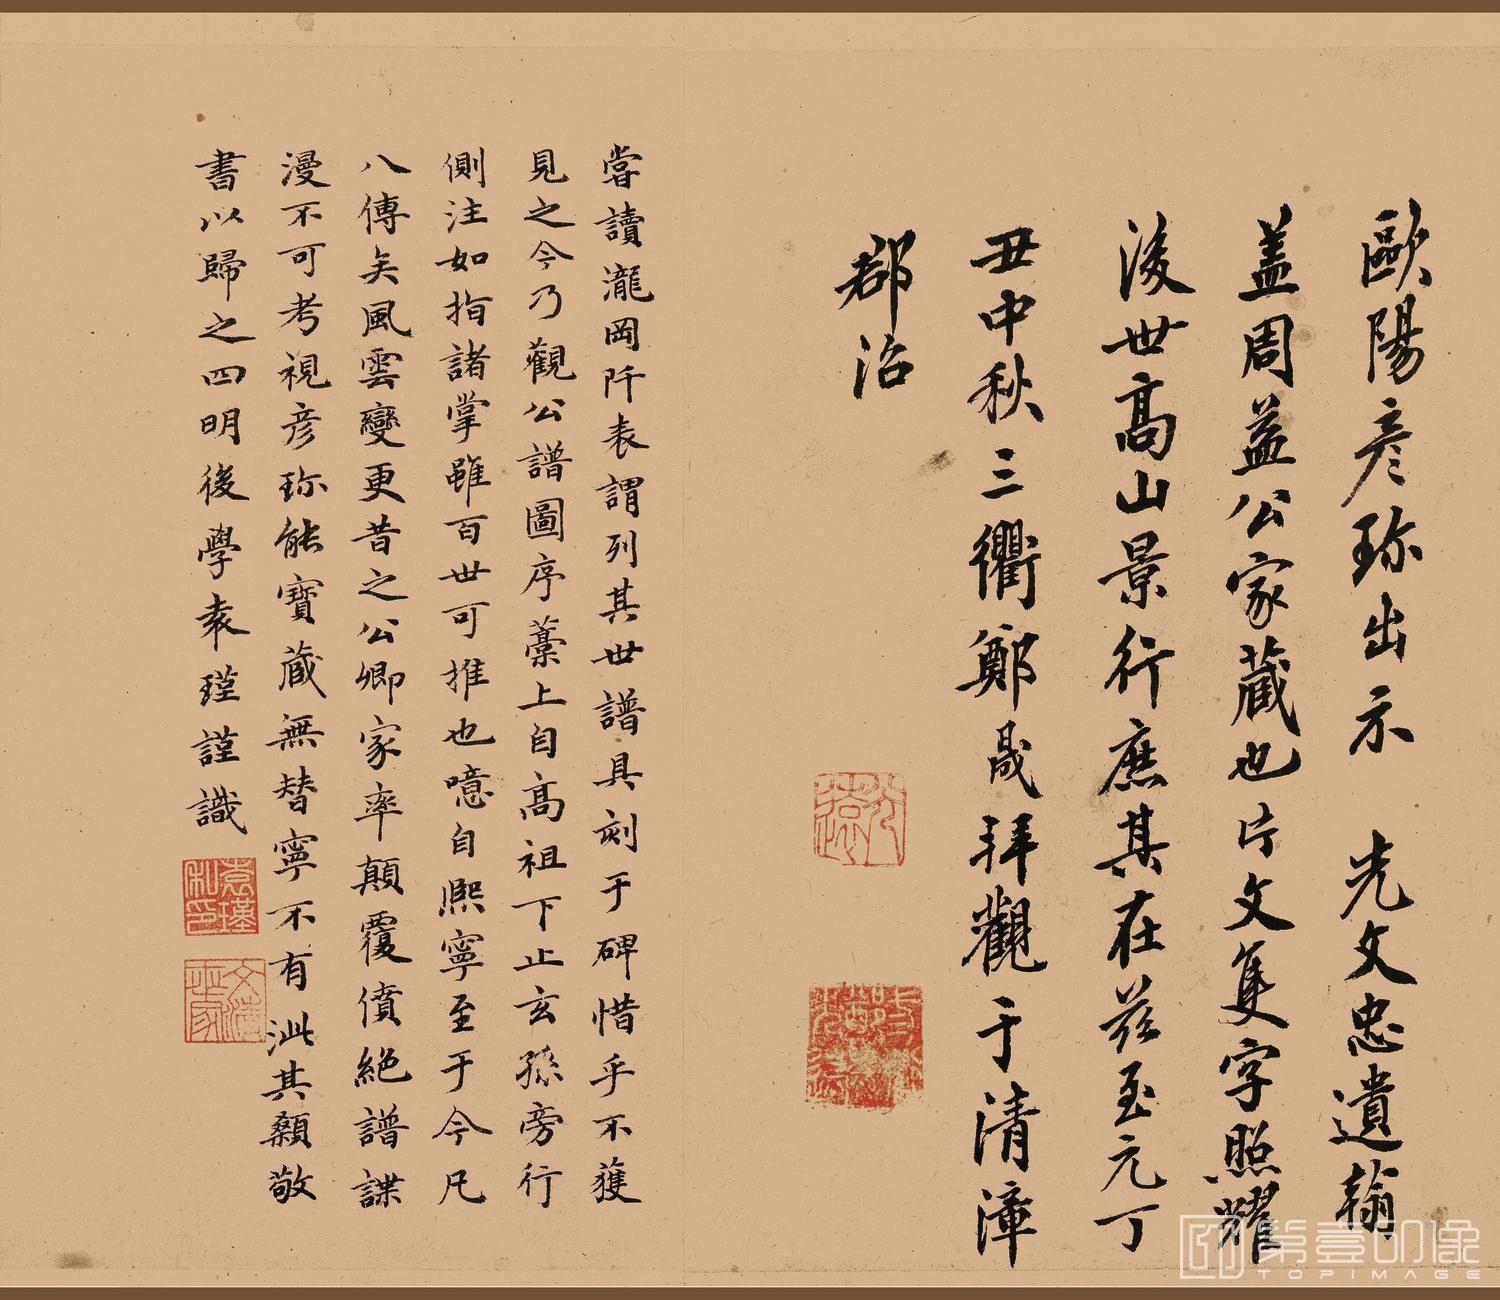 歐陽彥珎出示　光文忠遺翰
盖周益公家藏也片文隻字照耀
後世高山景行庶其在茲至元丁
丑中秋三衢鄭晟拜觀于清漳
郡治
嘗讀瀧岡阡表謂列其世譜具刻于碑惜乎不獲
見之今乃觀公譜圖序藁上自高祖下止玄孫旁行
側注如指諸掌雖百世可推也噫自熈寧至于今凡
八傳矣風雲變更昔之公卿家率顛覆僨絕譜諜
漫不可考視彥珎能寶藏無替寧不有泚其顙敬
書以歸之四明後學袁瑾謹識
袁瑾私印
第壹印像
TOPIMAGE